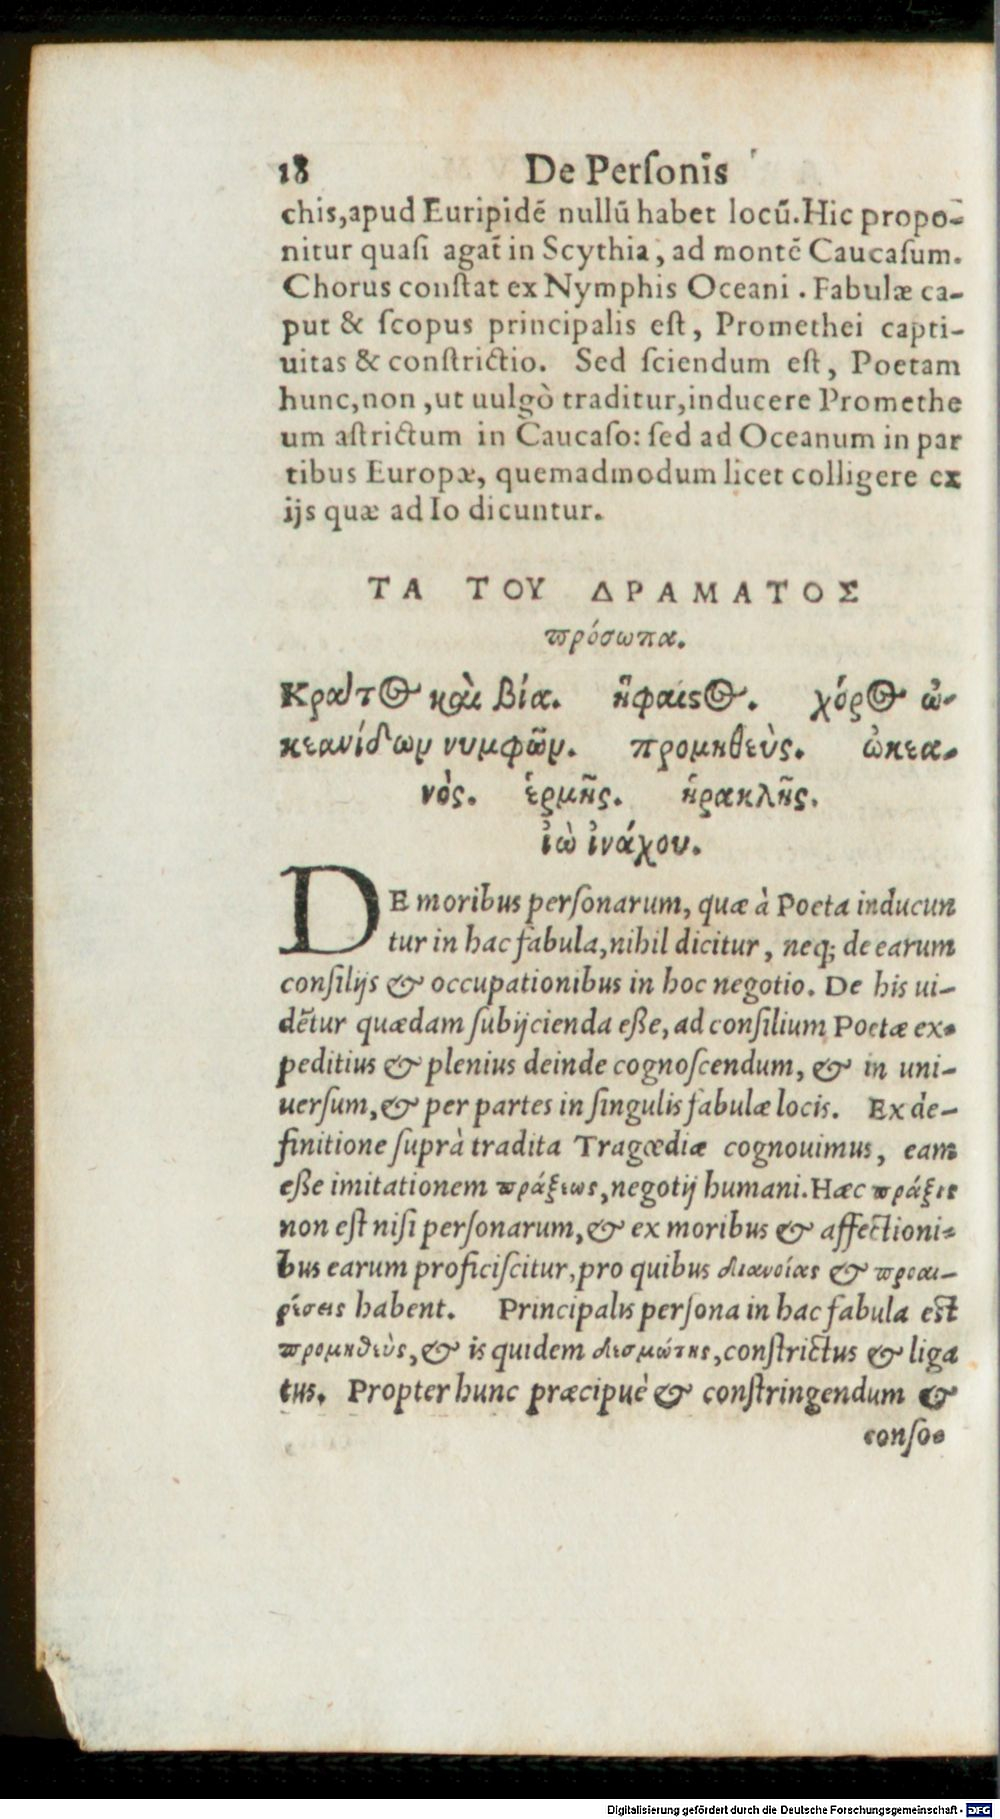 18 De Perſonis
chis,apud Euripidẽ nullũ habet locũ.Hic propo-
nitur quaſi agat̃ in Scythia, ad montẽ Caucaſum.
Chorus conſtat ex Nymphis Oceani. Fabulæ ca-
put & ſcopus principalis eſt, Promethei capti-
uitas & conſtrictio. Sed ſciendum eſt, Poetam
hunc,non ,ut uulgò traditur,inducere Promethe
um aſtrictum in Caucaſo: ſed ad Oceanum in par
tibus Europæ, quemadmodum licet colligere ex
ijs quæ ad Io dicuntur.
ΤΑ ΤΟΥ ΔΡΑΜΑΤΟΣ
πρόσωπα.
Κράτος καὶ βία. ἥφαιςος. χόρος ὠ-
κεανίδων νυμφῶν. προμηθεὺς. ὠκεα-
νὸς. ἑρμῆς. ἡρακλῆς.
ἰὼ ἰνάχου.
DE moribus perſonarum, quæ à Poeta inducun
tur in hac fabula,nihil dicitur, neq; de earum
conſilijs & occupationibus in hoc negotio. De his ui-
dẽtur quædam ſubijcienda eſſe, ad conſilium Poetæ ex-
peditius & plenius deinde cognoſcendum, & in uni-
uerſum,& per partes in ſingulis fabulæ locis. Ex de-
finitione ſuprà tradita Tragœdiæ cognouimus, eam
eſſe imitationem πράξεως,negotij humani.Hæc πράξις
non eſt niſi perſonarum,& ex moribus & affectioni-
bus earum proficiſcitur,pro quibus διανοίας & προαι-
ρέσεις habent. Principalis perſona in hac fabula eſt
προμηθεὺς,& is quidem δεσμώτης,conſtrictus & liga
tus. Propter hunc præcipuè & conſtringendum &
conſo-
Digitalisierung gefördert durch die Deutsche Forschungsgemeinschaft - DFG